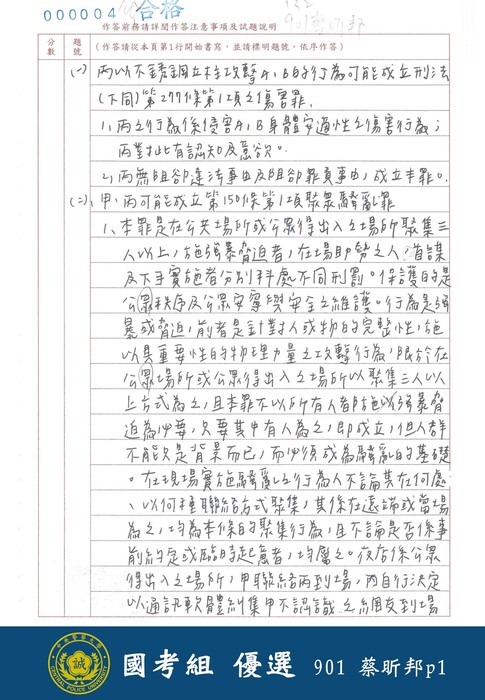 000004
合格
132
901 蔡昕邦
作答前務請詳閱作答注意事項及試題說明
分數
題號
(作答請從本頁第1行開始書寫,並請標明題號,依序作答)
(一) 丙以不銹鋼立柱攻擊A、B的行為可能成立刑法
(下同)第277條第1項之傷害罪。
1、丙之行為係侵害A、B身體安適性之傷害行為;
丙對此有認知及意欲。
2、丙無阻卻違法事由及阻卻罪責事由,成立本罪。
(二) 甲、丙可能成立第150條第1項聚眾騷亂罪
1、本罪是在公共場所或公眾得出入之場所聚集三
人以上,施強暴脅迫者,在場助勢之人、首謀
及下手實施者分別科處不同刑罰。保護的是
公眾秩序及公眾安寧與安全之維護。行為是強
暴或脅迫,前者是針對人或物的完整性,施
以具重要性的物理力量之攻擊行為,限於在
公眾場所或公眾得出入之場所以聚集三人以
上方式為之,且本罪不以所有人皆施以強暴脅
迫為必要,只要其中有人為之,即成立,但人群
不能只是背景而已,而必須成為騷亂的基礎
。在現場實施騷亂之行為人不論其在何處
、以何種聯絡方式聚集,其係在遠端或當場
為之,均為本條的聚集行為,且不論是否係事
前約定或臨時起意者,均屬之。夜店係公眾
得出入之場所,甲聯絡丙到場,丙自行決定
以通訊軟體糾集甲不認識之網友到場
CENTRAL POLICE UNIVERSITY
誠
國考組 優選 901 蔡昕邦p1